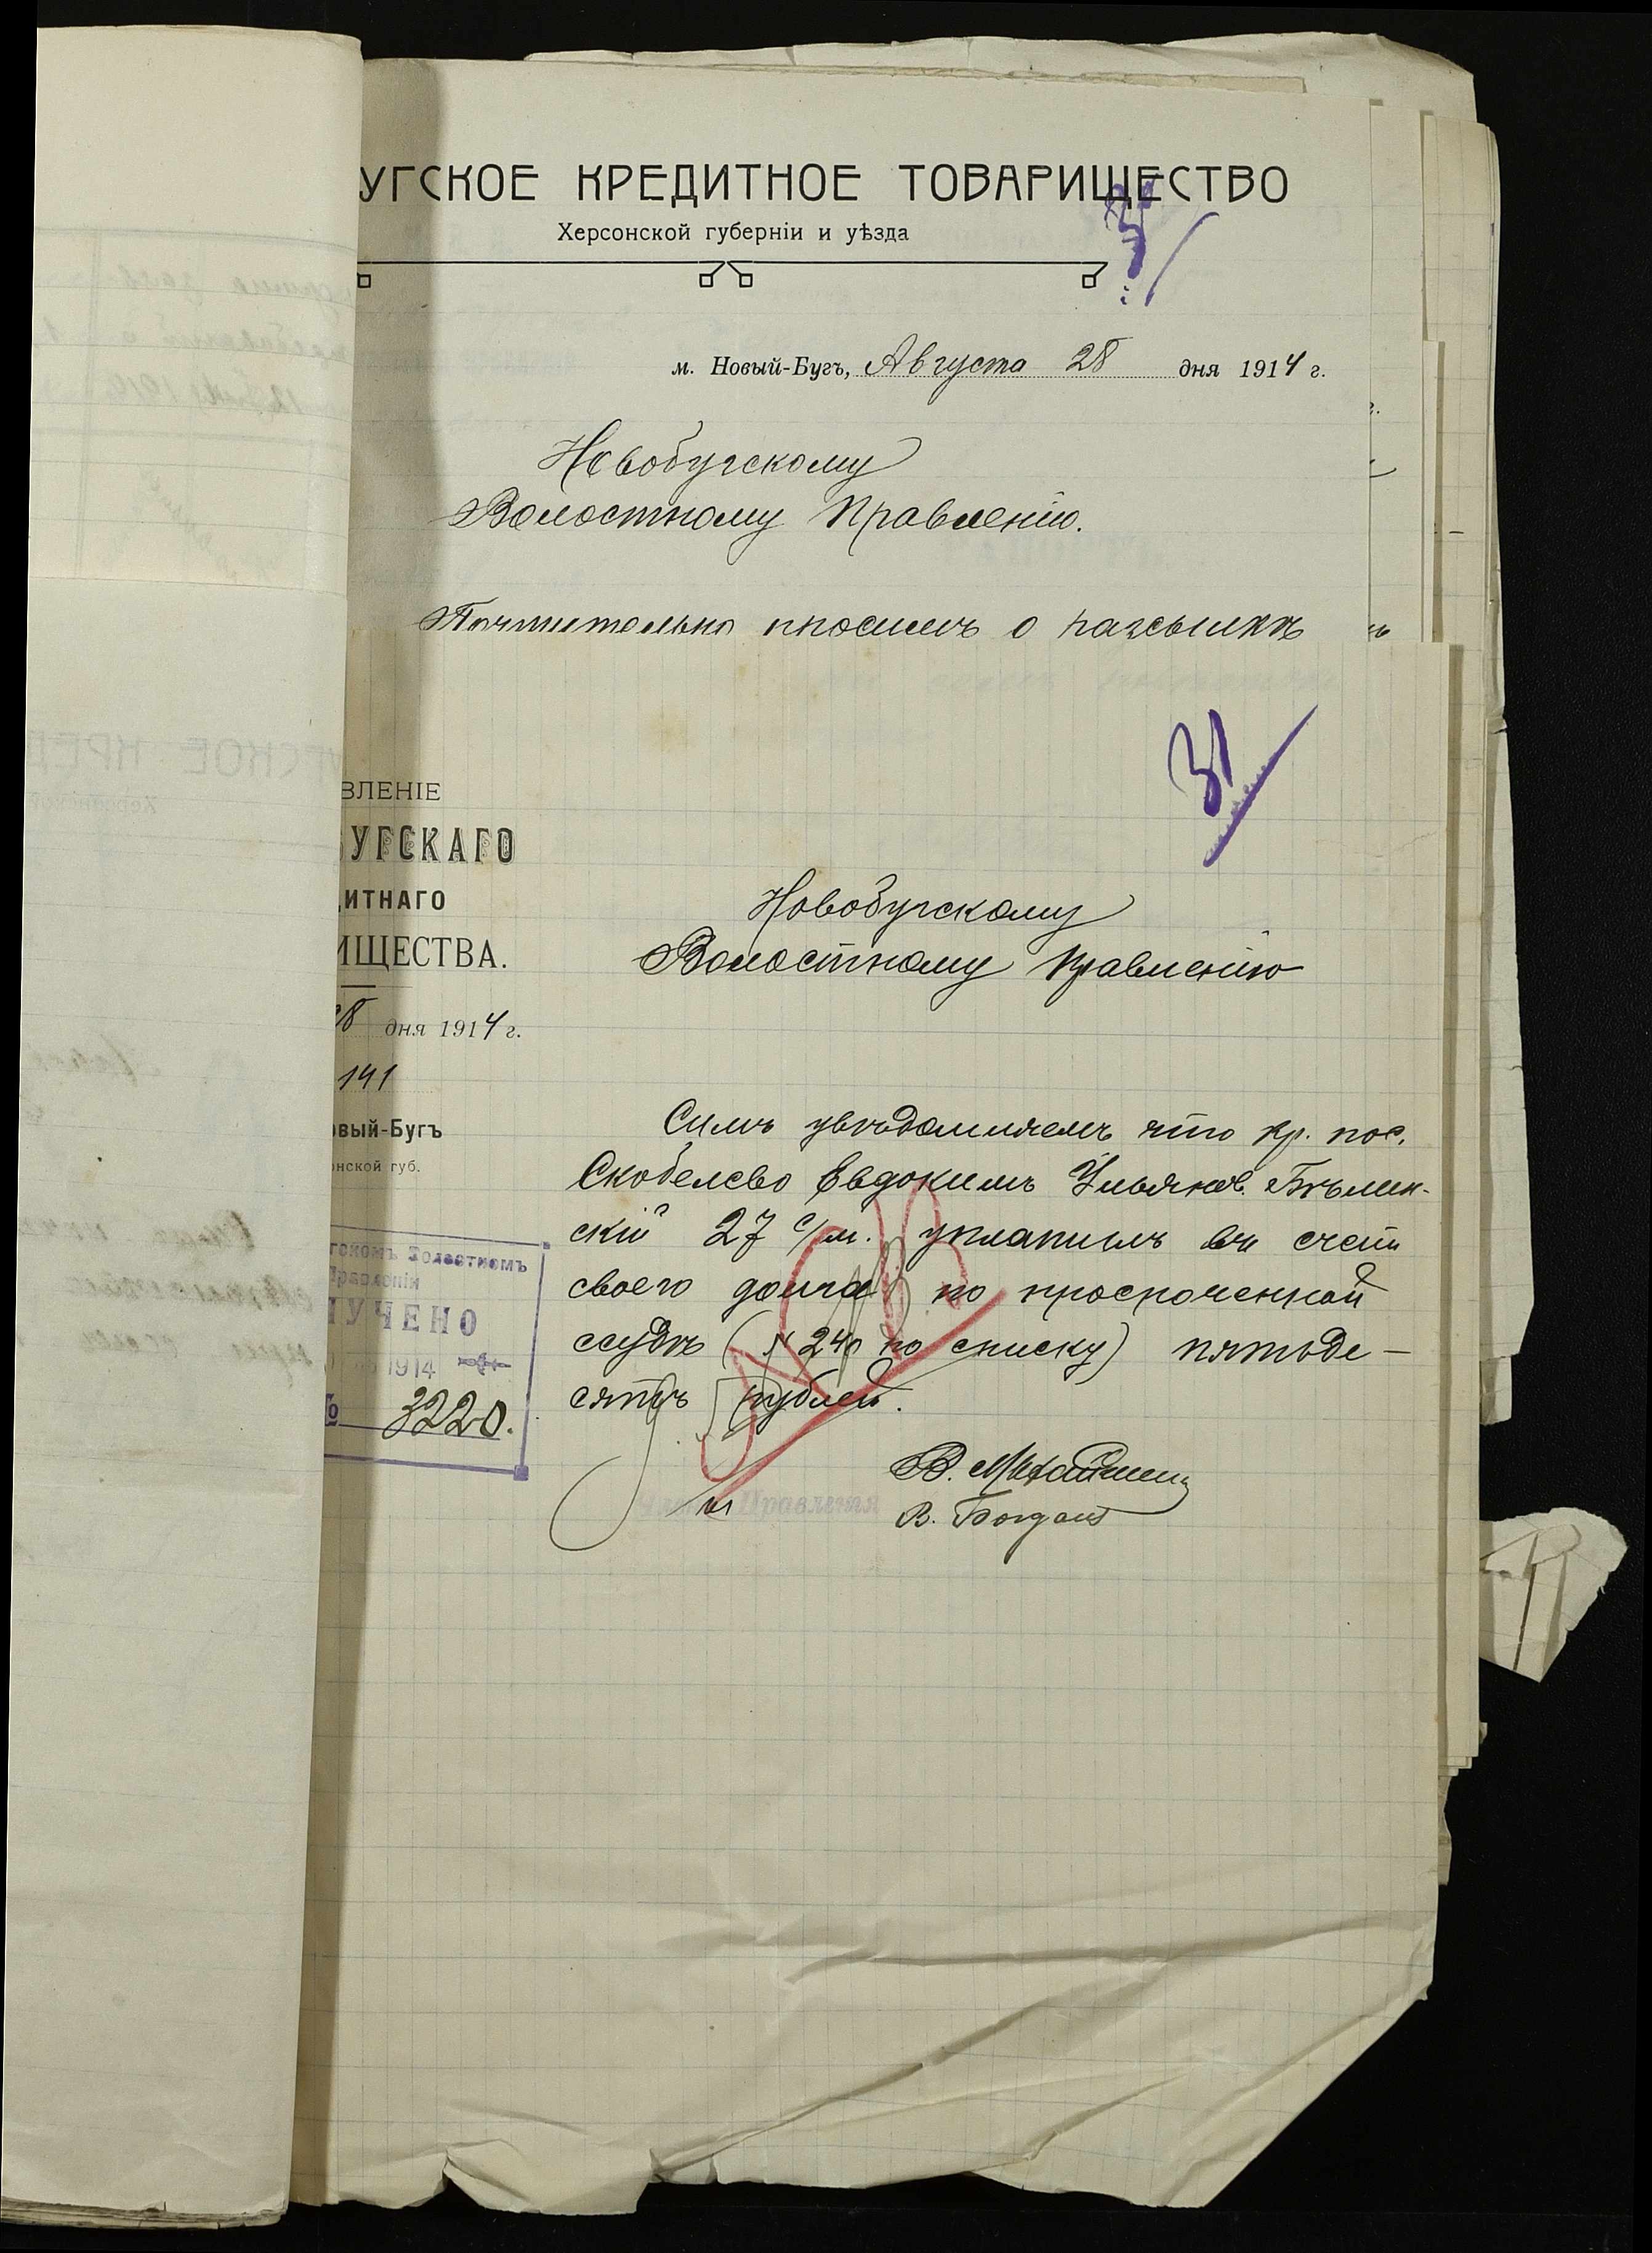 УГСКОЕ КРЕДИТНОЕ ТОВАРИЩЕСТВО
Херсонской губерніи и уѣзда
м. Новый-Бугъ, Августа 28 дня 1914 г.
Новобугскому
Волостному Правленію.
Почтительно просимъ о разсылкѣ
31
ВЛЕНІЕ
БУГСКАГО
ДИТНАГО
ИЩЕСТВА.
28 дня 1914 г.
141
овый-Бугъ
онской губ.
Новобугскому
Волостному Правленію
Симъ увѣдомляемъ что кр. пос.
Скобелево Евдокимъ Ульянов. Бѣлин-
скій 27 с/м. уплатилъ въ счетъ
своего долга по просроченной
ссудѣ (№ 240 по списку) пятьде-
сятъ рублей.
гскомъ Волостномъ
Правленіи
ЛУЧЕНО
1914
№ 3220.
Правленія
В. Богдан